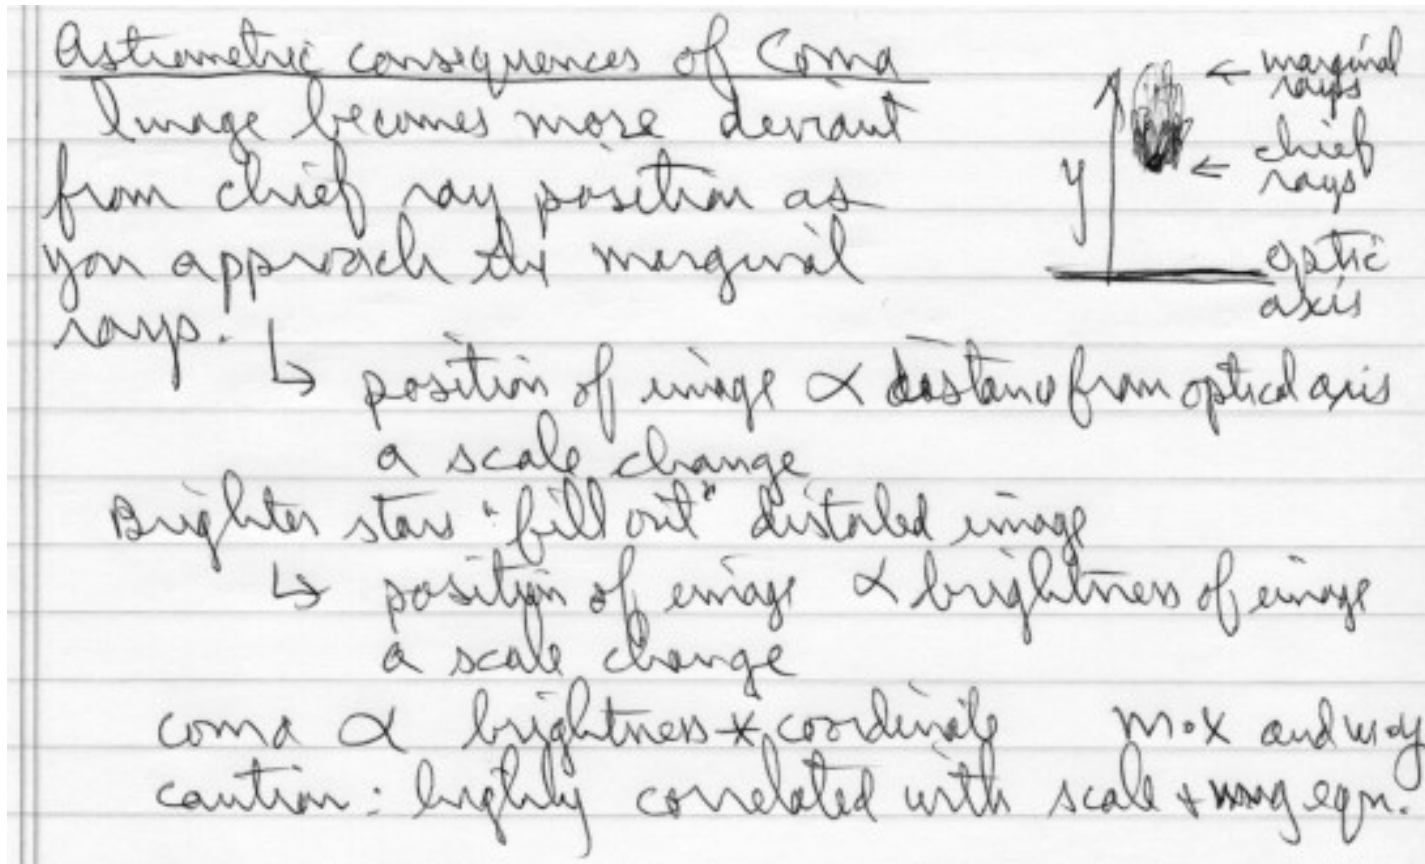 Astrometric consequences of Coma
Image becomes more deviant
from chief ray position as
you approach the marginal
rays.
↳ position of image ∝ distance from optical axis
a scale change
Brighter stars "fill out" distorted image
↳ position of image ∝ brightness of image
a scale change
coma ∝ brightness * coordinate m·x and m·y
caution: highly correlated with scale + mag eqn.
y
← marginal
rays
← chief
rays
optic
axis